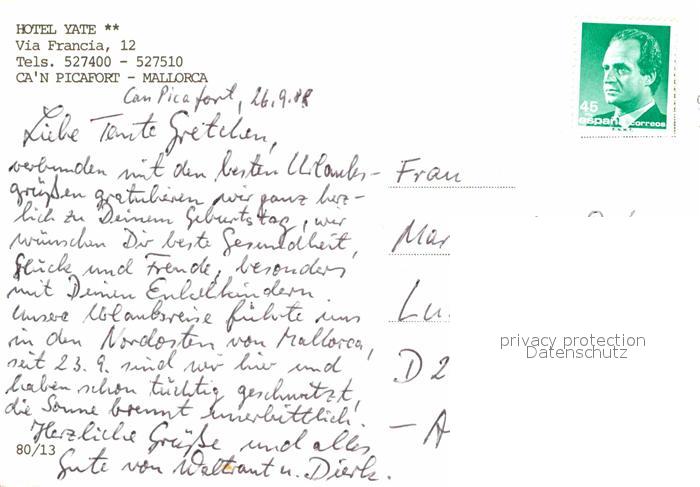 HOTEL YATE **
Via Francia, 12
Tels. 527400 - 527510
CA'N PICAFORT - MALLORCA
Can Picafort, 26.9.88
Liebe Tante Gretchen,
verbunden mit den besten Urlaubs-
grüßen gratulieren wir ganz herz-
lich zu Deinem Geburtstag, wir
wünschen Dir beste Gesundheit,
Glück und Freude, besonders
mit Deinen Enkelkindern.
Unsere Urlaubsreise führte uns
in den Nordosten von Mallorca,
seit 23.9. sind wir hier und
haben schon tüchtig geschwitzt,
die Sonne brennt unerbittlich!
Herzliche Grüße und alles
Gute von Waltraut u. Dierk.
80/13
45
españa correos
Frau
Mar
Lu
D 2
- A
privacy protection
Datenschutz